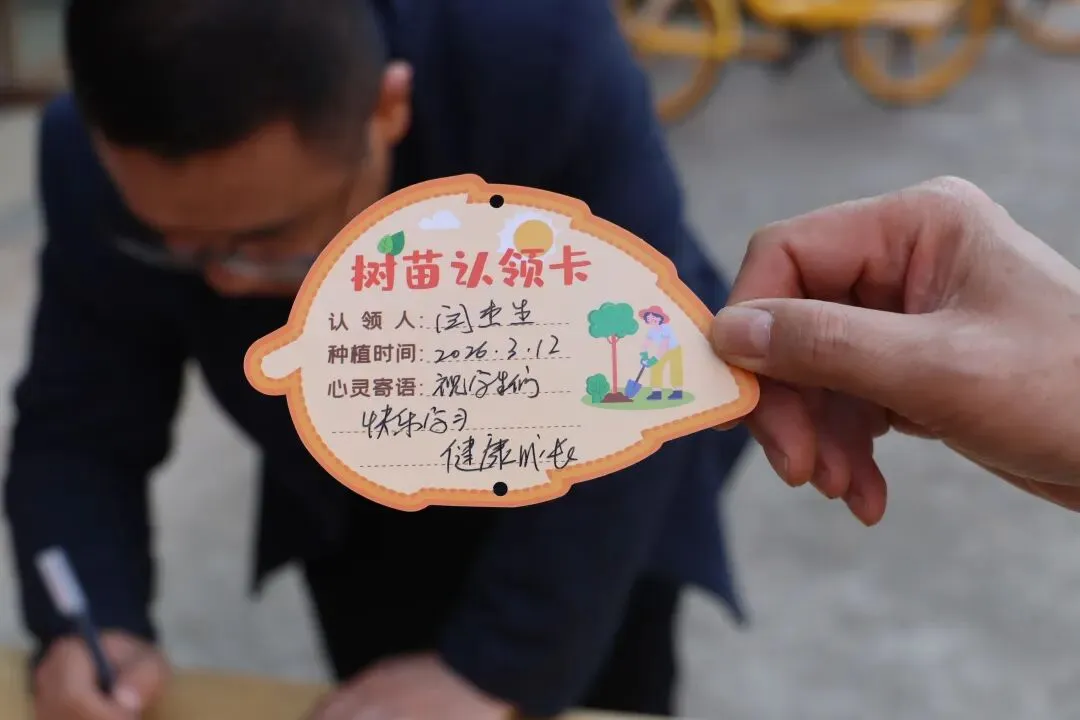 树苗认领卡
认领人：闫杰生
种植时间：2026.3.12
心灵寄语：祝学生们
快乐学习
健康成长